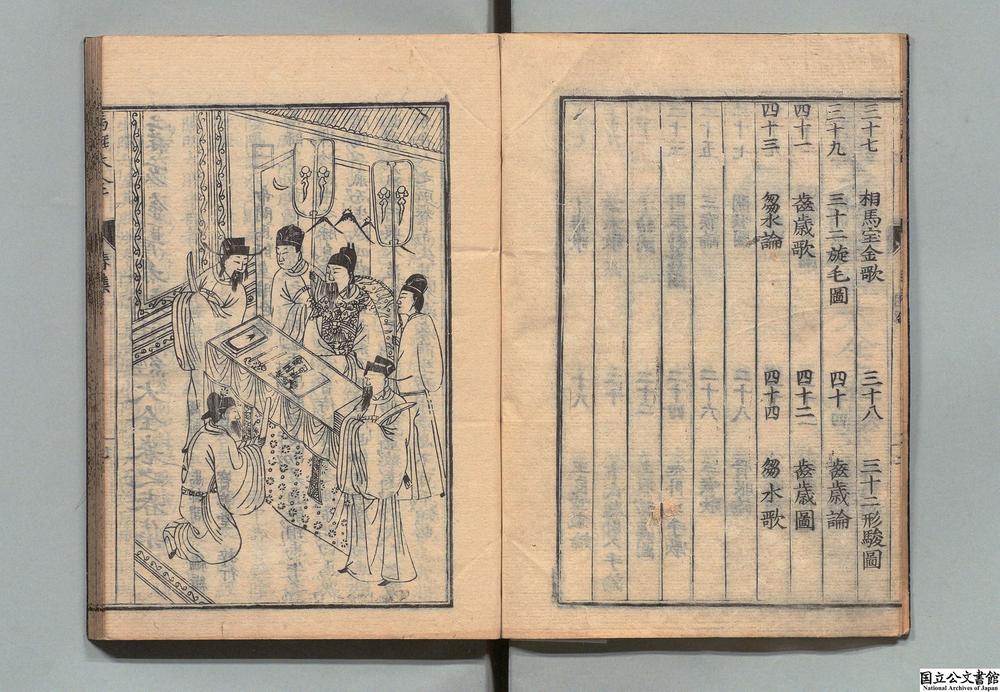 三十七 相馬宝金歌 三十八 三十二形駿圖
三十九 三十二旋毛圖 四十 齒歳論
四十一 齒歳歌 四十二 齒歳圖
四十三 芻水論 四十四 芻水歌
春集
国立公文書館
National Archives of Japan